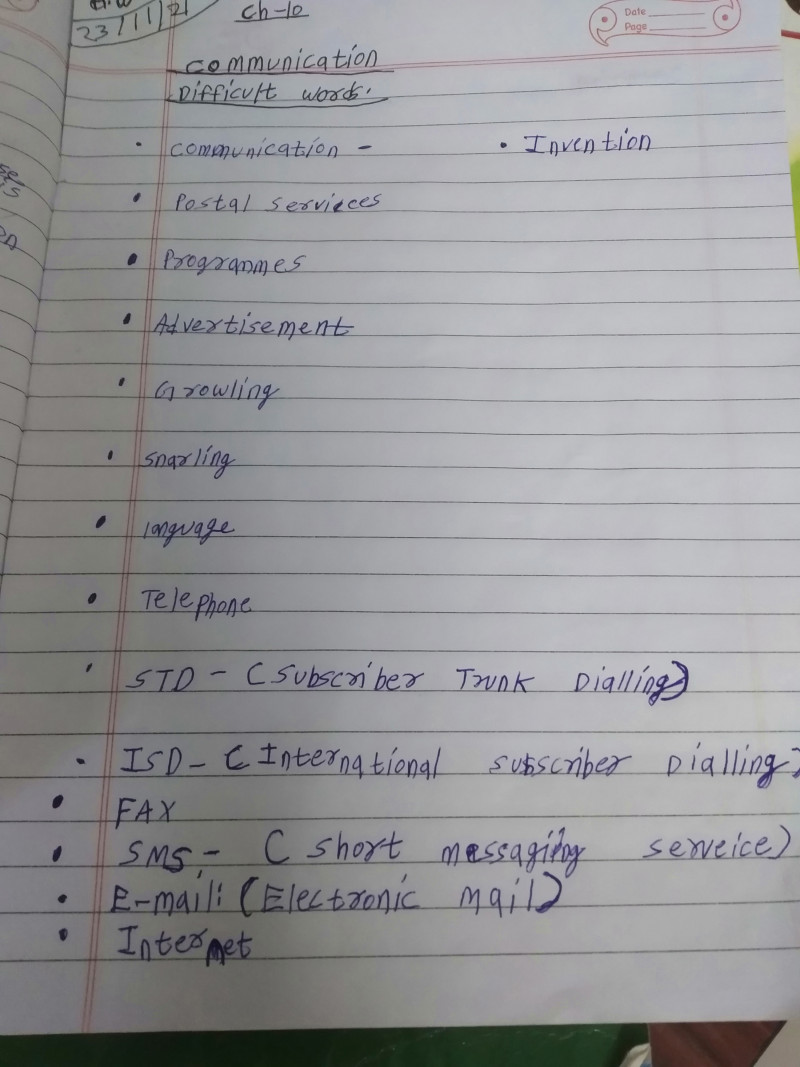 H.W
23/11/21
Ch-10
Date
Page
Communication
Difficult words.
• Communication -
• Invention
• Postal services
• Programmes
• Advertisement
• Growling
• snarling
• language
• Telephone
• STD - (Subscriber Trunk Dialling)
• ISD - (International subscriber Dialling)
• FAX
• SMS - (short messaging serveice)
• E-mail: (Electronic mail)
• Internet